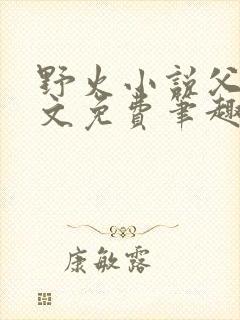 野火小说父
文免费笔趣
康敏露